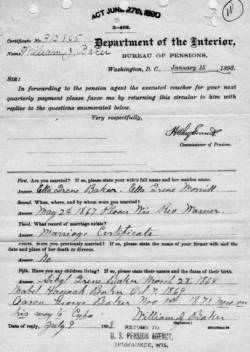 ACT JUNE 27th, 1890
3-402.
Certificate No. 312865
Name, William J. Baker
Department of the Interior,
BUREAU OF PENSIONS,
Washington, D. C., January 15, 1898.
SIR:
In forwarding to the pension agent the executed voucher for your next
quarterly payment please favor me by returning this circular to him with
replies to the questions enumerated below.
Very respectfully,
Commissioner of Pensions.
First. Are you married? If so, please state your wife's full name and her maiden name.
Answer. Etta Irene Baker. Etta Irene Morrill
Second. When, where, and by whom were you married?
Answer. May 2d 1867 Wis. Geo Warner
Third. What record of marriage exists?
Answer. Marriage Certificate
Fourth. Were you previously married? If so, please state the name of your former wife and the
date and place of her death or divorce.
Answer. No
Fifth. Have you any children living? If so, please state their names and the dates of their birth.
Answer. Irene Baker March 28, 1868
Mabel Baker Oct 4 1869
Aaron George Baker Nov 1st 1871 Now on
his way to Cuba
William J Baker
Date of reply, July 9, 1898
RETURN TO
U. S. PENSION AGENCY,
MILWAUKEE, WIS.